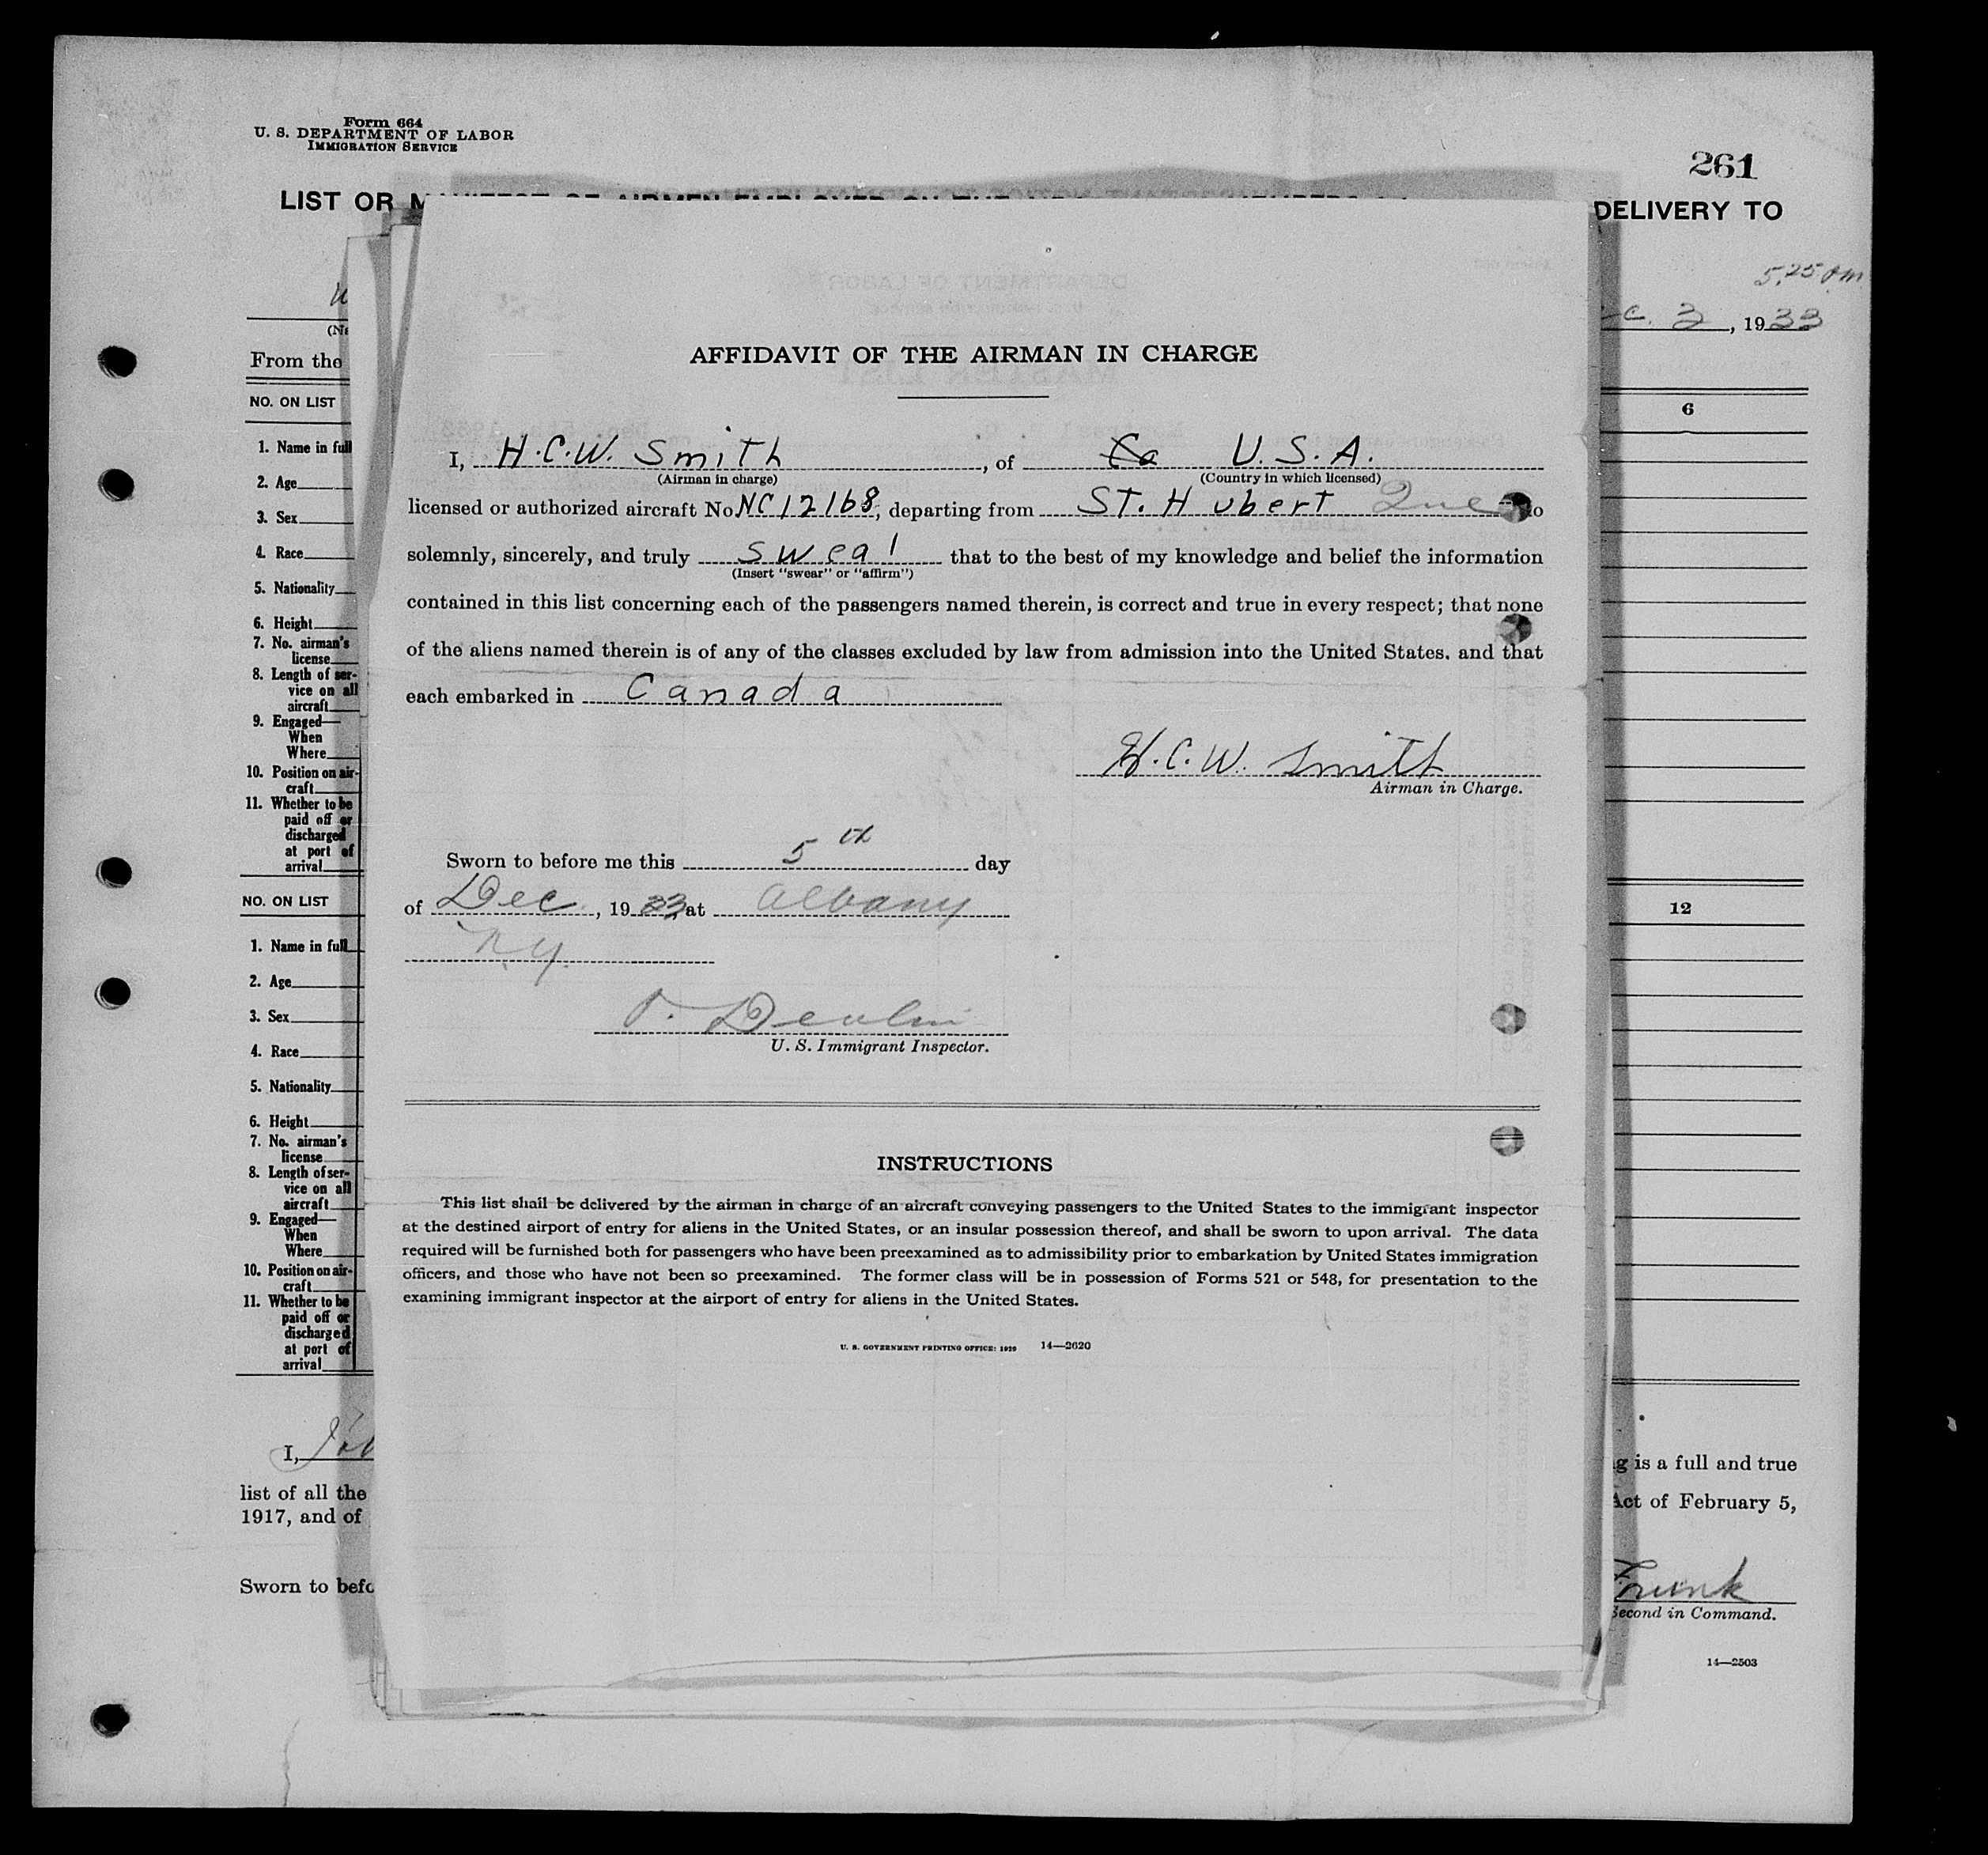 Form 664
U. S. DEPARTMENT OF LABOR
IMMIGRATION SERVICE
261
LIST OR
DELIVERY TO
5.25 pm
c. 2, 1933
From the
NO. ON LIST
6
1. Name in full
2. Age
3. Sex
4. Race
5. Nationality
6. Height
7. No. airman's
license
8. Length of ser-
vice on all
aircraft
9. Engaged—
When
Where
10. Position on air-
craft
11. Whether to be
paid off or
discharged
at port of
arrival
NO. ON LIST
12
1. Name in full
2. Age
3. Sex
4. Race
5. Nationality
6. Height
7. No. airman's
license
8. Length of ser-
vice on all
aircraft
9. Engaged—
When
Where
10. Position on air-
craft
11. Whether to be
paid off or
discharged
at port of
arrival
I,
list of all the
1917, and of
Sworn to befo
g is a full and true
Act of February 5,
Frunk
Second in Command.
14—2503
AFFIDAVIT OF THE AIRMAN IN CHARGE
I, H.C.W. Smith, of Ca U.S.A.
(Airman in charge) (Country in which licensed)
licensed or authorized aircraft No. NC12168, departing from ST. Hubert Que do
solemnly, sincerely, and truly swear that to the best of my knowledge and belief the information
(Insert "swear" or "affirm")
contained in this list concerning each of the passengers named therein, is correct and true in every respect; that none
of the aliens named therein is of any of the classes excluded by law from admission into the United States, and that
each embarked in Canada
H.C.W. Smith
Airman in Charge.
Sworn to before me this 5th day
of Dec., 1933, at Albany
N.Y.
P. Devlin
U. S. Immigrant Inspector.
INSTRUCTIONS
This list shall be delivered by the airman in charge of an aircraft conveying passengers to the United States to the immigrant inspector
at the destined airport of entry for aliens in the United States, or an insular possession thereof, and shall be sworn to upon arrival. The data
required will be furnished both for passengers who have been preexamined as to admissibility prior to embarkation by United States immigration
officers, and those who have not been so preexamined. The former class will be in possession of Forms 521 or 548, for presentation to the
examining immigrant inspector at the airport of entry for aliens in the United States.
U. S. GOVERNMENT PRINTING OFFICE: 1929 14—2620